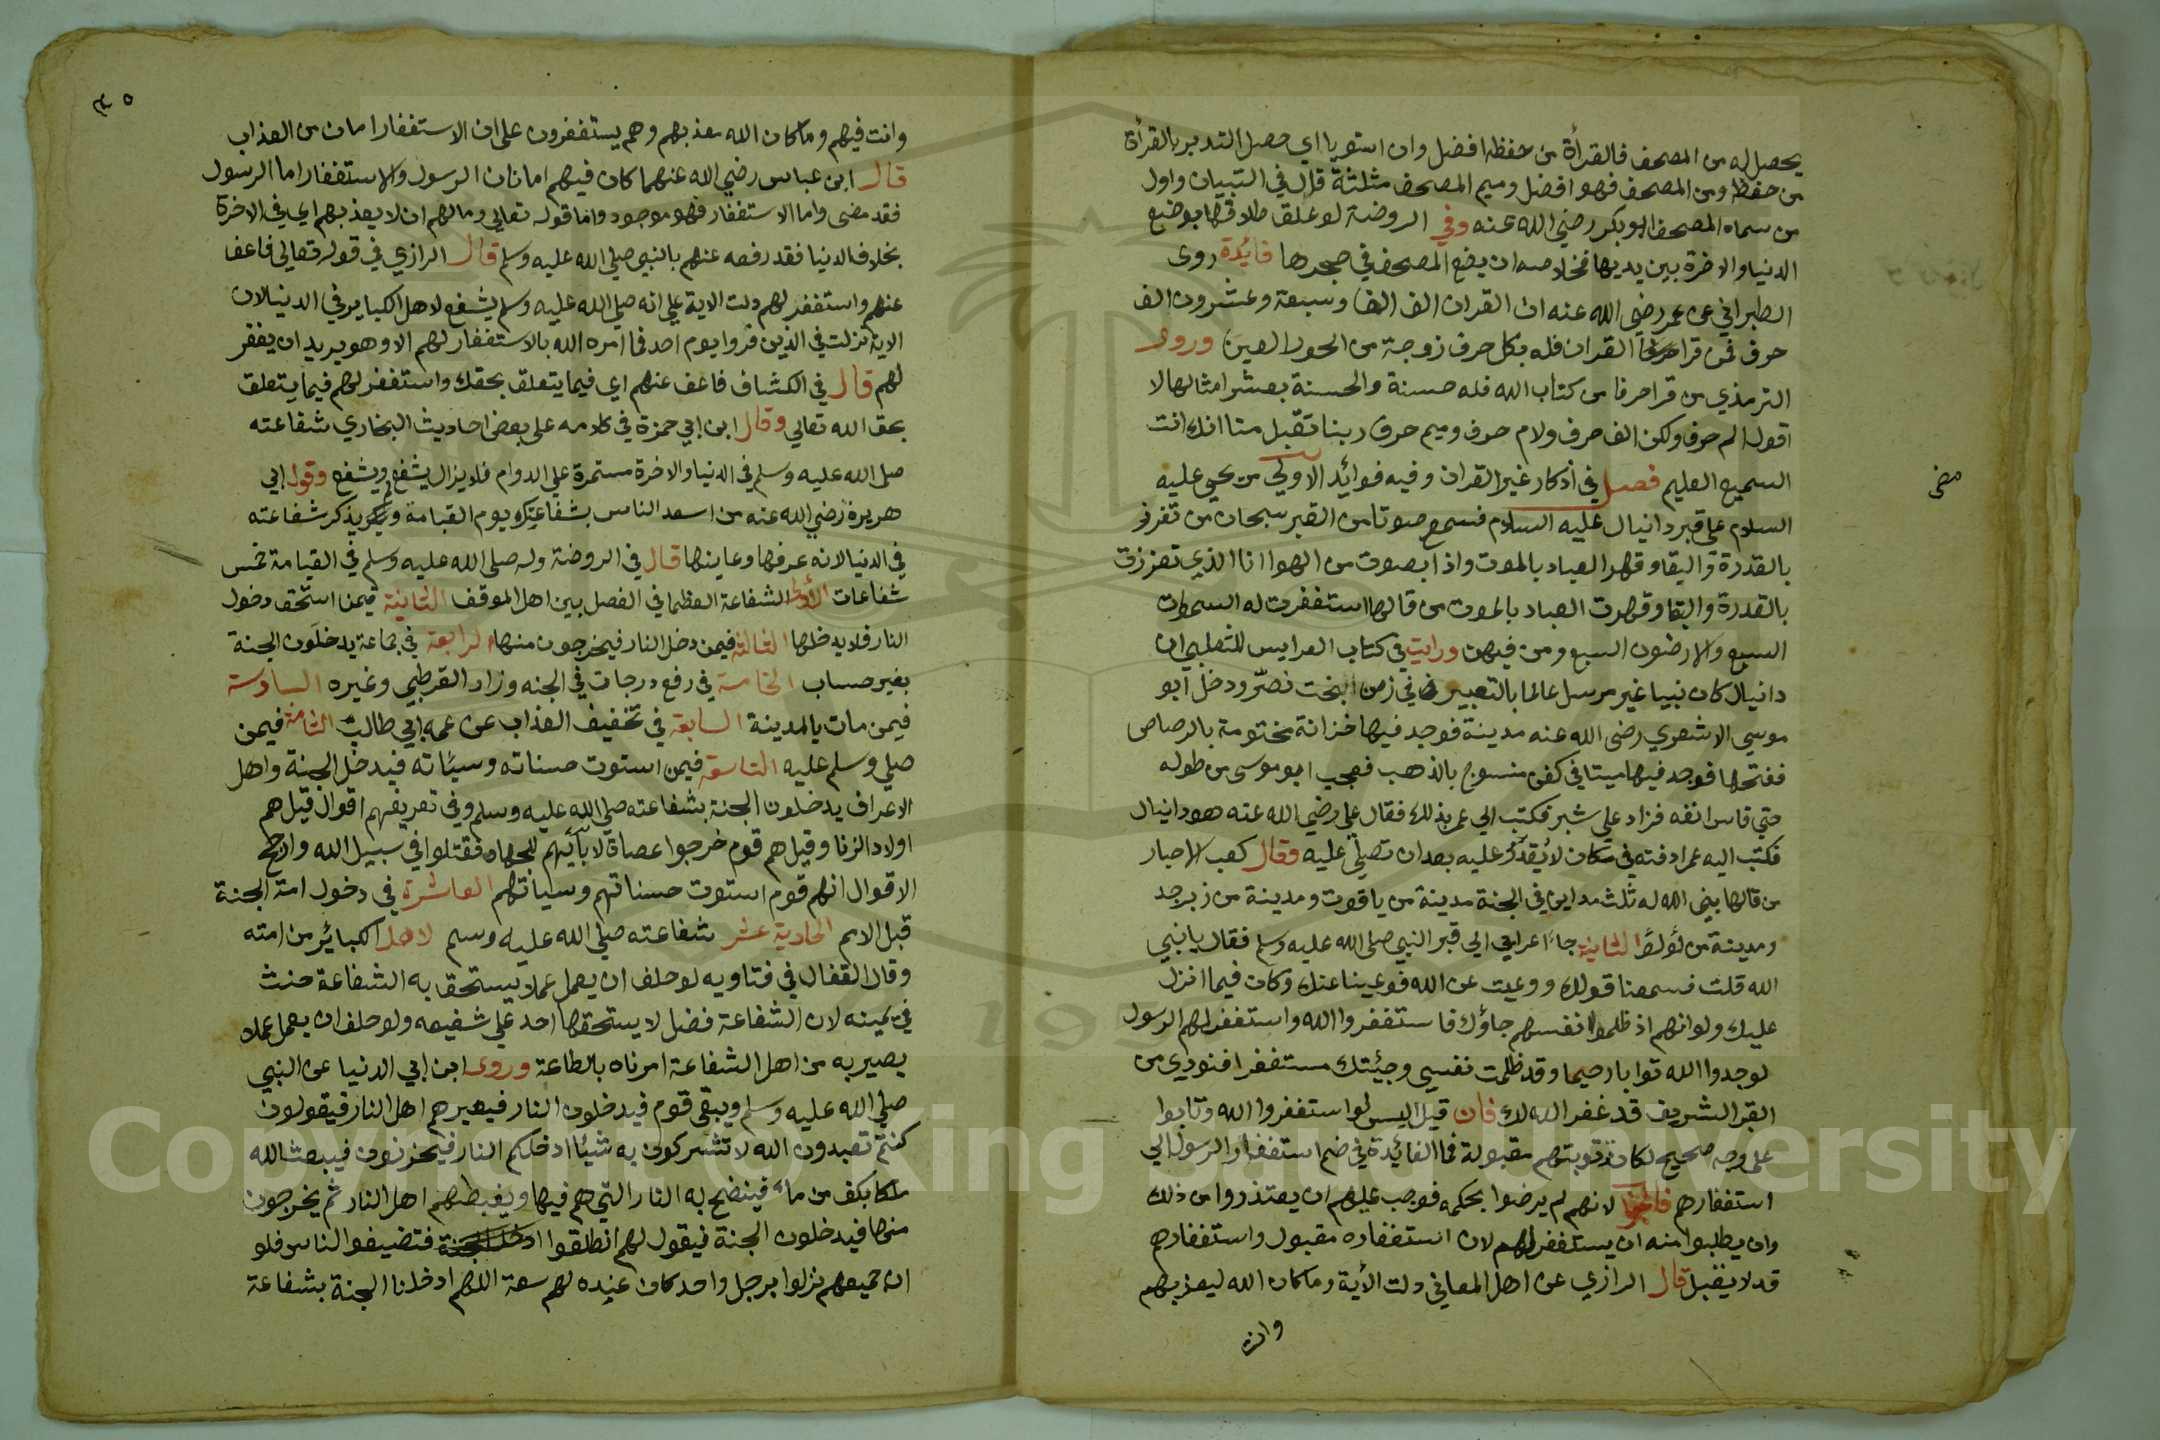 يحصل له من المصحف فالقرأة من حفظه افضل وان استويا اي حصل التدبر بالقرأة
من حفظه ومن المصحف فهو افضل وميم المصحف مثلثة قال في التبيان واول
من سماه المصحف ابوبكر رضي الله عنه وفي الروضة لو علق طلاقها بوضع
الدنيا والاخرة بين يديها فخلاصه ان يضع المصحف في حجرها فايدة روى
الطبراني عن عمر رضي الله عنه ان القران الف الف وسبعة وعشرون الف
حرف فمن قرا القران فله بكل حرف زوجة من الحور العين وروى
الترمذي من قرا حرفا من كتاب الله فله حسنة والحسنة بعشر امثالها لا
اقول الم حرف ولكن الف حرف ولام حرف وميم حرف ربنا تقبل منا انك انت
السميع العليم فصل في اذكار غير القران وفيه فوائد الاولي من يحي عليه
مضى
السلام على قبر دانيال عليه السلام فسمع صوتا من القبر سبحان من تعزز
بالقدرة والبقا وقهر العباد بالموت واذا بصوت من الهوا انا الذي تعززت
بالقدرة والبقا وقهرت العباد بالموت من قالها استغفرت له السموات
السبع والارضون السبع ومن فيهن ورايت في كتاب العرايس للثعلبي ان
دانيال كان نبيا غير مرسل عالما بالتعبير في زمن البخت نصر ودخل ابو
موسي الاشعري رضي الله عنه مدينة فوجد فيها خزانة مختومة بالرصاص
ففتحها فوجد فيها ميتا في كفن منسوج بالذهب فعجب ابو موسى من طوله
حتي قاس انفه فزاد على شبر فكتب الي عمر بذلك فقال علي رضي الله عنه هو دانيال
فكتب اليه عمر ادفنه في مكان لا يقدر عليه بعد ان تصلي عليه وقال كعب الاحبار
من قالها بني الله له ثلث مداين في الجنة مدينة من ياقوت ومدينة من زبرجد
ومدينة من لؤلؤ الثانية جاء اعرابي الي قبر النبي صلى الله عليه وسلم فقال يا نبي
الله قلت فسمعنا قولك ووعيت عن الله فوعينا عنك وكان فيما انزل
عليك ولو انهم اذ ظلموا انفسهم جاؤك فاستغفروا الله واستغفر لهم الرسول
لوجدوا الله توابا رحيما وقد ظلمت نفسي وجئتك مستغفرا فنودي من
القبر الشريف قد غفر الله لك فان قيل اليس لو استغفروا الله وتابوا
على وجه صحيح لكان توبتهم مقبولة فما الفائدة في ضم استغفار الرسول الي
استغفارهم لانهم لم يرضوا بحكمه فوجب عليهم ان يعتذروا من ذلك
وان يطلبوا منه ان يستغفر لهم لان استغفاره مقبول واستغفارهم
قد لا يقبل قال الرازي عن اهل المعاني دلت الأية وما كان الله ليعذبهم
وانت
وانت فيهم وما كان الله معذبهم وهم يستغفرون على ان الاستغفار امان من العذاب
قال ابن عباس رضي الله عنهما كان فيهم امانان الرسول والاستغفار اما الرسول
فقد مضى واما الاستغفار فهو موجود واما قوله تعالي وما لهم ان لا يعذبهم اي في الاخرة
بخلاف الدنيا فقد رفعه عنهم بالنبي صلي الله عليه وسلم قال الرازي في قوله تعالى فاعف
عنهم واستغفر لهم دلت الاية على انه صلي الله عليه وسلم يشفع لاهل الكباير في الدنيا لان
الاية نزلت في الذين فروا يوم احد فما امره الله بالاستغفار لهم الا وهو يريد ان يغفر
لهم قال في الكشاف فاعف عنهم اي فيما يتعلق بحقك واستغفر لهم فيما يتعلق
بحق الله تعالي وقال ابن ابي حمزة في كلامه على بعض احاديث البخاري شفاعته
صلى الله عليه وسلم في الدنيا والاخرة مستمرة علي الدوام فلا يزال يشفع ويشفع وقول ابي
هريرة رضي الله عنه من اسعد الناس بشفاعتك يوم القيامة ولم يذكر شفاعته
في الدنيا لانه عرفها وعاينها قال في الروضة وله صلى الله عليه وسلم في القيامة خمس
شفاعات الأولى الشفاعة العظما في الفصل بين اهل الموقف الثانية فيمن استحق دخول
النار فلا يدخلها الثالثة فيمن دخل النار فيخرجون منها الرابعة في جماعة يدخلون الجنة
بغير حساب الخامسة في رفع درجات في الجنه وزاد القرطبي وغيره السادسة
فيمن مات بالمدينة السابعة في تخفيف العذاب عن عمه ابي طالب الثامنة فيمن
صلي وسلم عليه التاسعة فيمن استوت حسناته وسيئاته فيدخل الجنة واهل
الاعراف يدخلون الجنة بشفاعته صلي الله عليه وسلم وفي تعريفهم اقوال قيل هم
اولاد الزنا وقيل هم قوم خرجوا عصاة لآبائهم للجهاد فقتلوا في سبيل الله وارجح
الاقوال انهم قوم استوت حسناتهم وسياتهم العاشرة في دخول امته الجنة
قبل الامم الحادية عشر شفاعته صلي الله عليه وسلم لاهل الكبائر من امته
وقال القفال في فتاويه لو حلف ان يعمل عملا يستحق به الشفاعة حنث
في يمينه لان الشفاعة فضل لا يستحقها احد علي شفيعه ولو حلف ان يعمل عملا
يصير به من اهل الشفاعة امرناه بالطاعة وروى ابن ابي الدنيا عن النبي
صلي الله عليه وسلم ويبقى قوم فيدخلون النار فيعيرهم اهل النار فيقولون
كنتم تعبدون الله لا تشركون به شيئا ادخلكم النار فيحزنون فيبعث الله
ملكا بكف من ماء فينضح به النار التي هم فيها ويغبطهم اهل النار ثم يخرجون
منها فيدخلون الجنة فيقول لهم انطلقوا فتضيفوا الناس فلو
ان جميعهم نزلوا برجل واحد كان عنده لهم سعة اللهم ادخلنا الجنة بشفاعة
Copyright © King Saud University